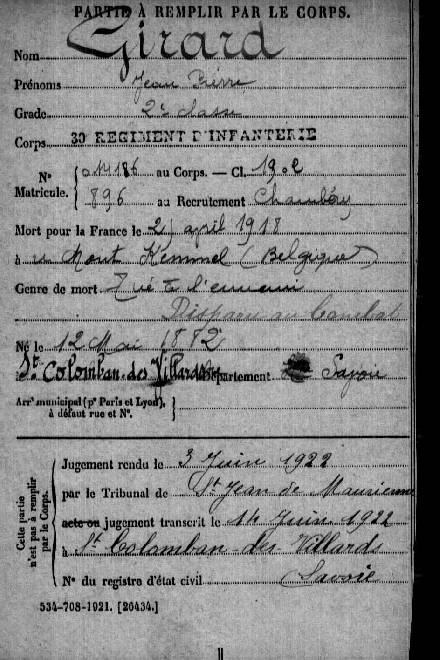 PARTIE À REMPLIR PAR LE CORPS.
Nom Girard
Prénoms Jean Pierre
Grade 2e classe
Corps 30 REGIMENT D'INFANTERIE
N° Matricule. 014186 au Corps. — Cl. 1902
896 au Recrutement Chambéry
Mort pour la France le 2 april 1918
à Mont Kemmel (Belgique)
Genre de mort Tué à l'ennemi
Disparu au Combat
Né le 12 Mai 1882
à St Colomban des Villards Département Savoie
Arrt municipal (pr Paris et Lyon), à défaut rue et N°.
Cette partie n'est pas à remplir par le Corps.
Jugement rendu le 3 Juin 1922
par le Tribunal de St Jean de Maurienne
acte ou jugement transcrit le 14 Juin 1922
à St Colomban des Villards
N° du registre d'état civil Savoie
534-708-1921. [26434.]